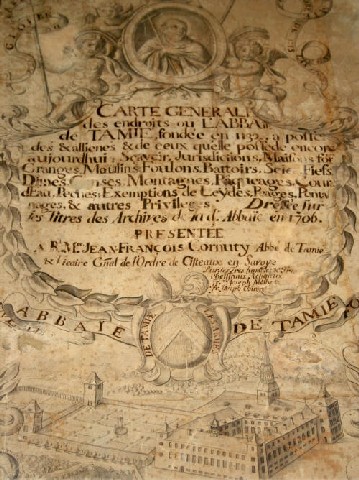 CARTE GENERALE
des endroits ou L'ABBAIE
de TAMIE fondée en 1132, a possé
dés & alliénés & de ceux quelle possède encore
aujourdhui: Scavoir, Jurisdictions, Maisons fort
Granges, Moulins Foulons, Battoirs, Scie, Fiefs,
Dimes, Montagnes, Paquerages, Cour
d'Eau, Pêches, Exemptions de Leyde, Péages, Ponto
nages, & autres Privileges. Dressée sur
les Titres des Archives de lad. Abbaie en 1706.
PRESENTÉE
A Rd. Mre JEAN-FRANÇOIS Cornuty Abbé de Tamié
& Vicaire Gñal de l'Ordre de Citeaux en Savoye
ABBAIE DE TAMIE